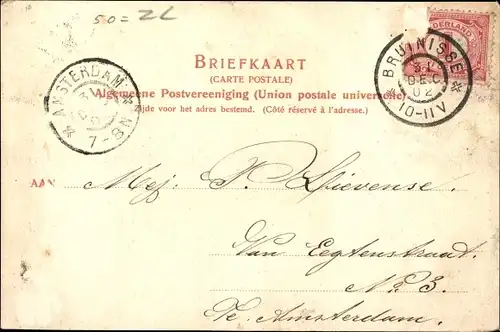 50 = 2L
NEDERLAND
BRIEFKAART
(CARTE POSTALE)
Algemeene Postvereeniging (Union postale universelle)
Zijde voor het adres bestemd. (Côté réservé à l'adresse.)
AMSTERDAM
7-8N
BRUINISSE
31
DEC.
02
10-11V
AAN
Mej: P. Lievense.
Van Eeghenstraat.
No 3.
Te Amsterdam.